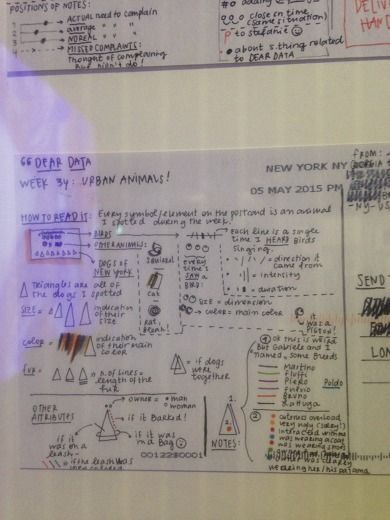 POSITIONS OF NOTES:
1 ACTUAL need to complain
2 average " "
3 NO REAL " "
4 MISSED COMPLAINTS:
thought of complaining
but didn't do!
close in time
(same situation)
to stefanie
about s.thing related
to DEAR DATA
DEAR DATA
WEEK 34: URBAN ANIMALS!
FROM:
NEW YORK NY
05 MAY 2015 PM
HOW TO READ IT: Every symbol/element on the postcard is an animal
I spotted during the week.
BIRDS
OTHER ANIMALS:
DOGS OF
NEW YORK
squirrel
cat
rat,
every
time I
SAW a
BIRD:
Each line is a single
time I HEARD Birds
singing.
= direction it
came from
= intensity
= duration
SIZE = dimension
color = main color
it
was a
Pigeon!
Triangles are all of
the dogs I spotted
SIZE = indication
of their
size
color = indication
of their main
color
fur = n. of lines =
length of the
fur
= if dogs
were
together
OK this is weird
but Gabriele and I
named, some Breeds
Martino
fluffi
Piero
fulvio
Bruno
Lattuga
Poldo
OTHER
ATTRIBUTES
OWNER = man
woman
if it Barked!
if it
was on a
leash
if it was
in a Bag
if the leash was
NOTES:
1.
2.
cuteness overload
very ugly (sorry!)
interacted with me
was wearing a coat
was wearing shoes
was clearly
wearing her/his pajama
0012280001
SEND T